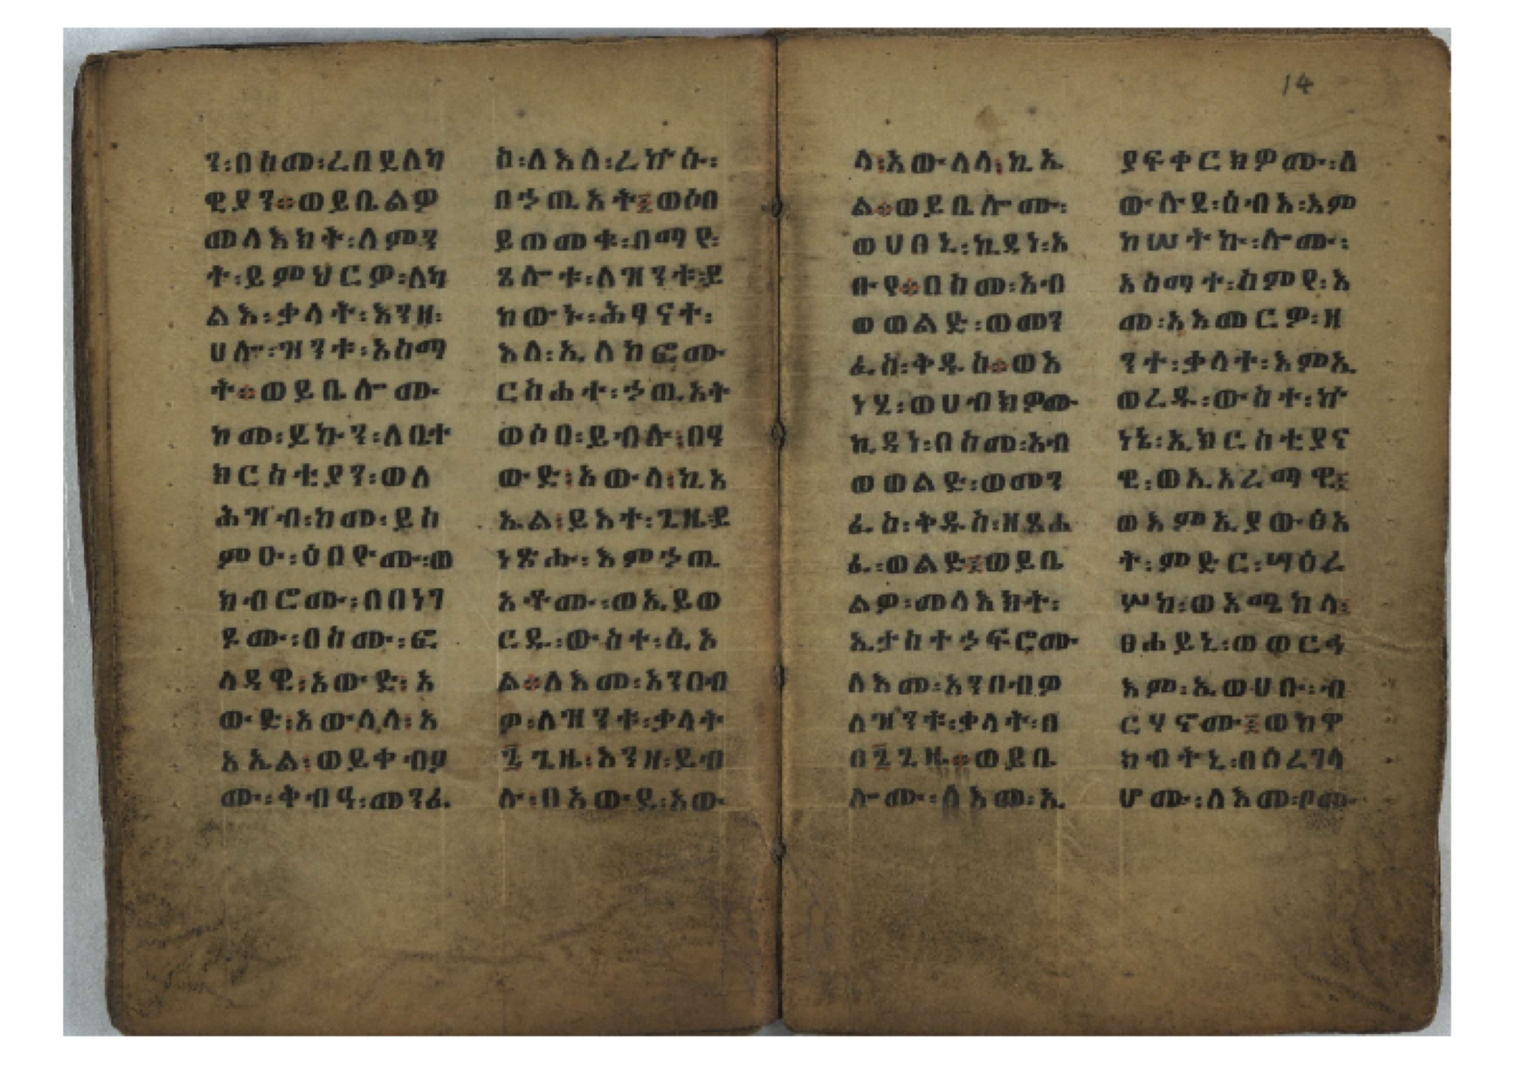 ን፡በስመ፡ረበይለካ
ዊያን።ወይቤልዎ
መላእክት፡ለምን
ት፡ይምህርዎ፡ለካ
ልእ፡ቃላት፡እንዘ፡
ሀሎ፡ዝንቱ፡አስማ
ት።ወይቤሎሙ
ከመ፡ይኩን፡ለቤተ
ክርስቲያን፡ወለ
ሕዝብ፡ከመ፡ይስ
ምዑ፡ዕበዮሙ፡ወ
ክብሮሙ፡በበነገ
ዶሙ፡በስሙ፡ፎ
ላዳዊ፡አውድ፡አ
ውድ፡አውላላ፡አ
አኤል፡ወይቀብዖ
ሙ፡ቅብዓ፡መንፈ
ስ፡ለእለ፡ረኵሱ፡
በኃጢአት፤ወሶበ
ይጠመቁ፡በማየ፡
ጸሎቱ፡ለዝንቱ፡ይ
ከውኑ፡ሕፃናት፡
እለ፡ኢለከፎሙ
ርስሐተ፡ኃጢአት
ወሶበ፡ይብሉ፡በፃ
ውድ፡አውላ፡ኪአ
ኤል፡ይእተ፡ጊዜ፡ይ
ነጽሑ፡እምኃጢ
አቶሙ፡ወኢይወ
ርዱ፡ውስተ፡ሲኦ
ል።ለእመ፡አንበብ
ዎ፡ለዝንቱ፡ቃላት
፯ጊዜ፡እንዘ፡ይብ
ሉ፡በአውይ፡አው
ላ፡አውላላ፡ኪኤ
ል።ወይቤሎሙ፡
ወሀበኒ፡ኪዳነ፡አ
ቡየ።በስመ፡አብ
ወወልድ፡ወመን
ፈስ፡ቅዱስ።ወአ
ነሂ፡ወሀብክዎሙ
ኪዳነ፡በስመ፡አብ
ወወልድ፡ወመን
ፈስ፡ቅዱስ፡ዘጸሐ
ፈ፡ወልድ፤ወይቤ
ልዎ፡መላእክት፡
ኢታስተኃፍሮሙ
ለእመ፡አንበብዎ
ለዝንቱ፡ቃላት፡በ
በ፯ጊዜ።ወይቤ
ሎሙ፡ለእመ፡ኢ
ያፍቀርክዎሙ፡ለ
ውሉደ፡ሰብእ፡እም
ከሠትኩ፡ሎሙ፡
አስማተ፡ስምየ፡እ
መ፡አእመርዎ፡ዘ
ንተ፡ቃላተ፡እምኢ
ወረዱ፡ውስተ፡ኵ
ነኔ፡ኢክርስቲያና
ዊ፡ወኢአረማዊ፤
ወእምኢያውፅአ
ት፡ምድር፡ሣዕረ
ሦከ፡ወአሜከላ፡
ፀሐይኒ፡ወወርኃ
እም፡ኢወሀቡ፡ብ
ርሃኖሙ፤ወከዋ
ክብትኒ፡በሰረገላ
ሆሙ፡ለእመ፡ቦሙ
14